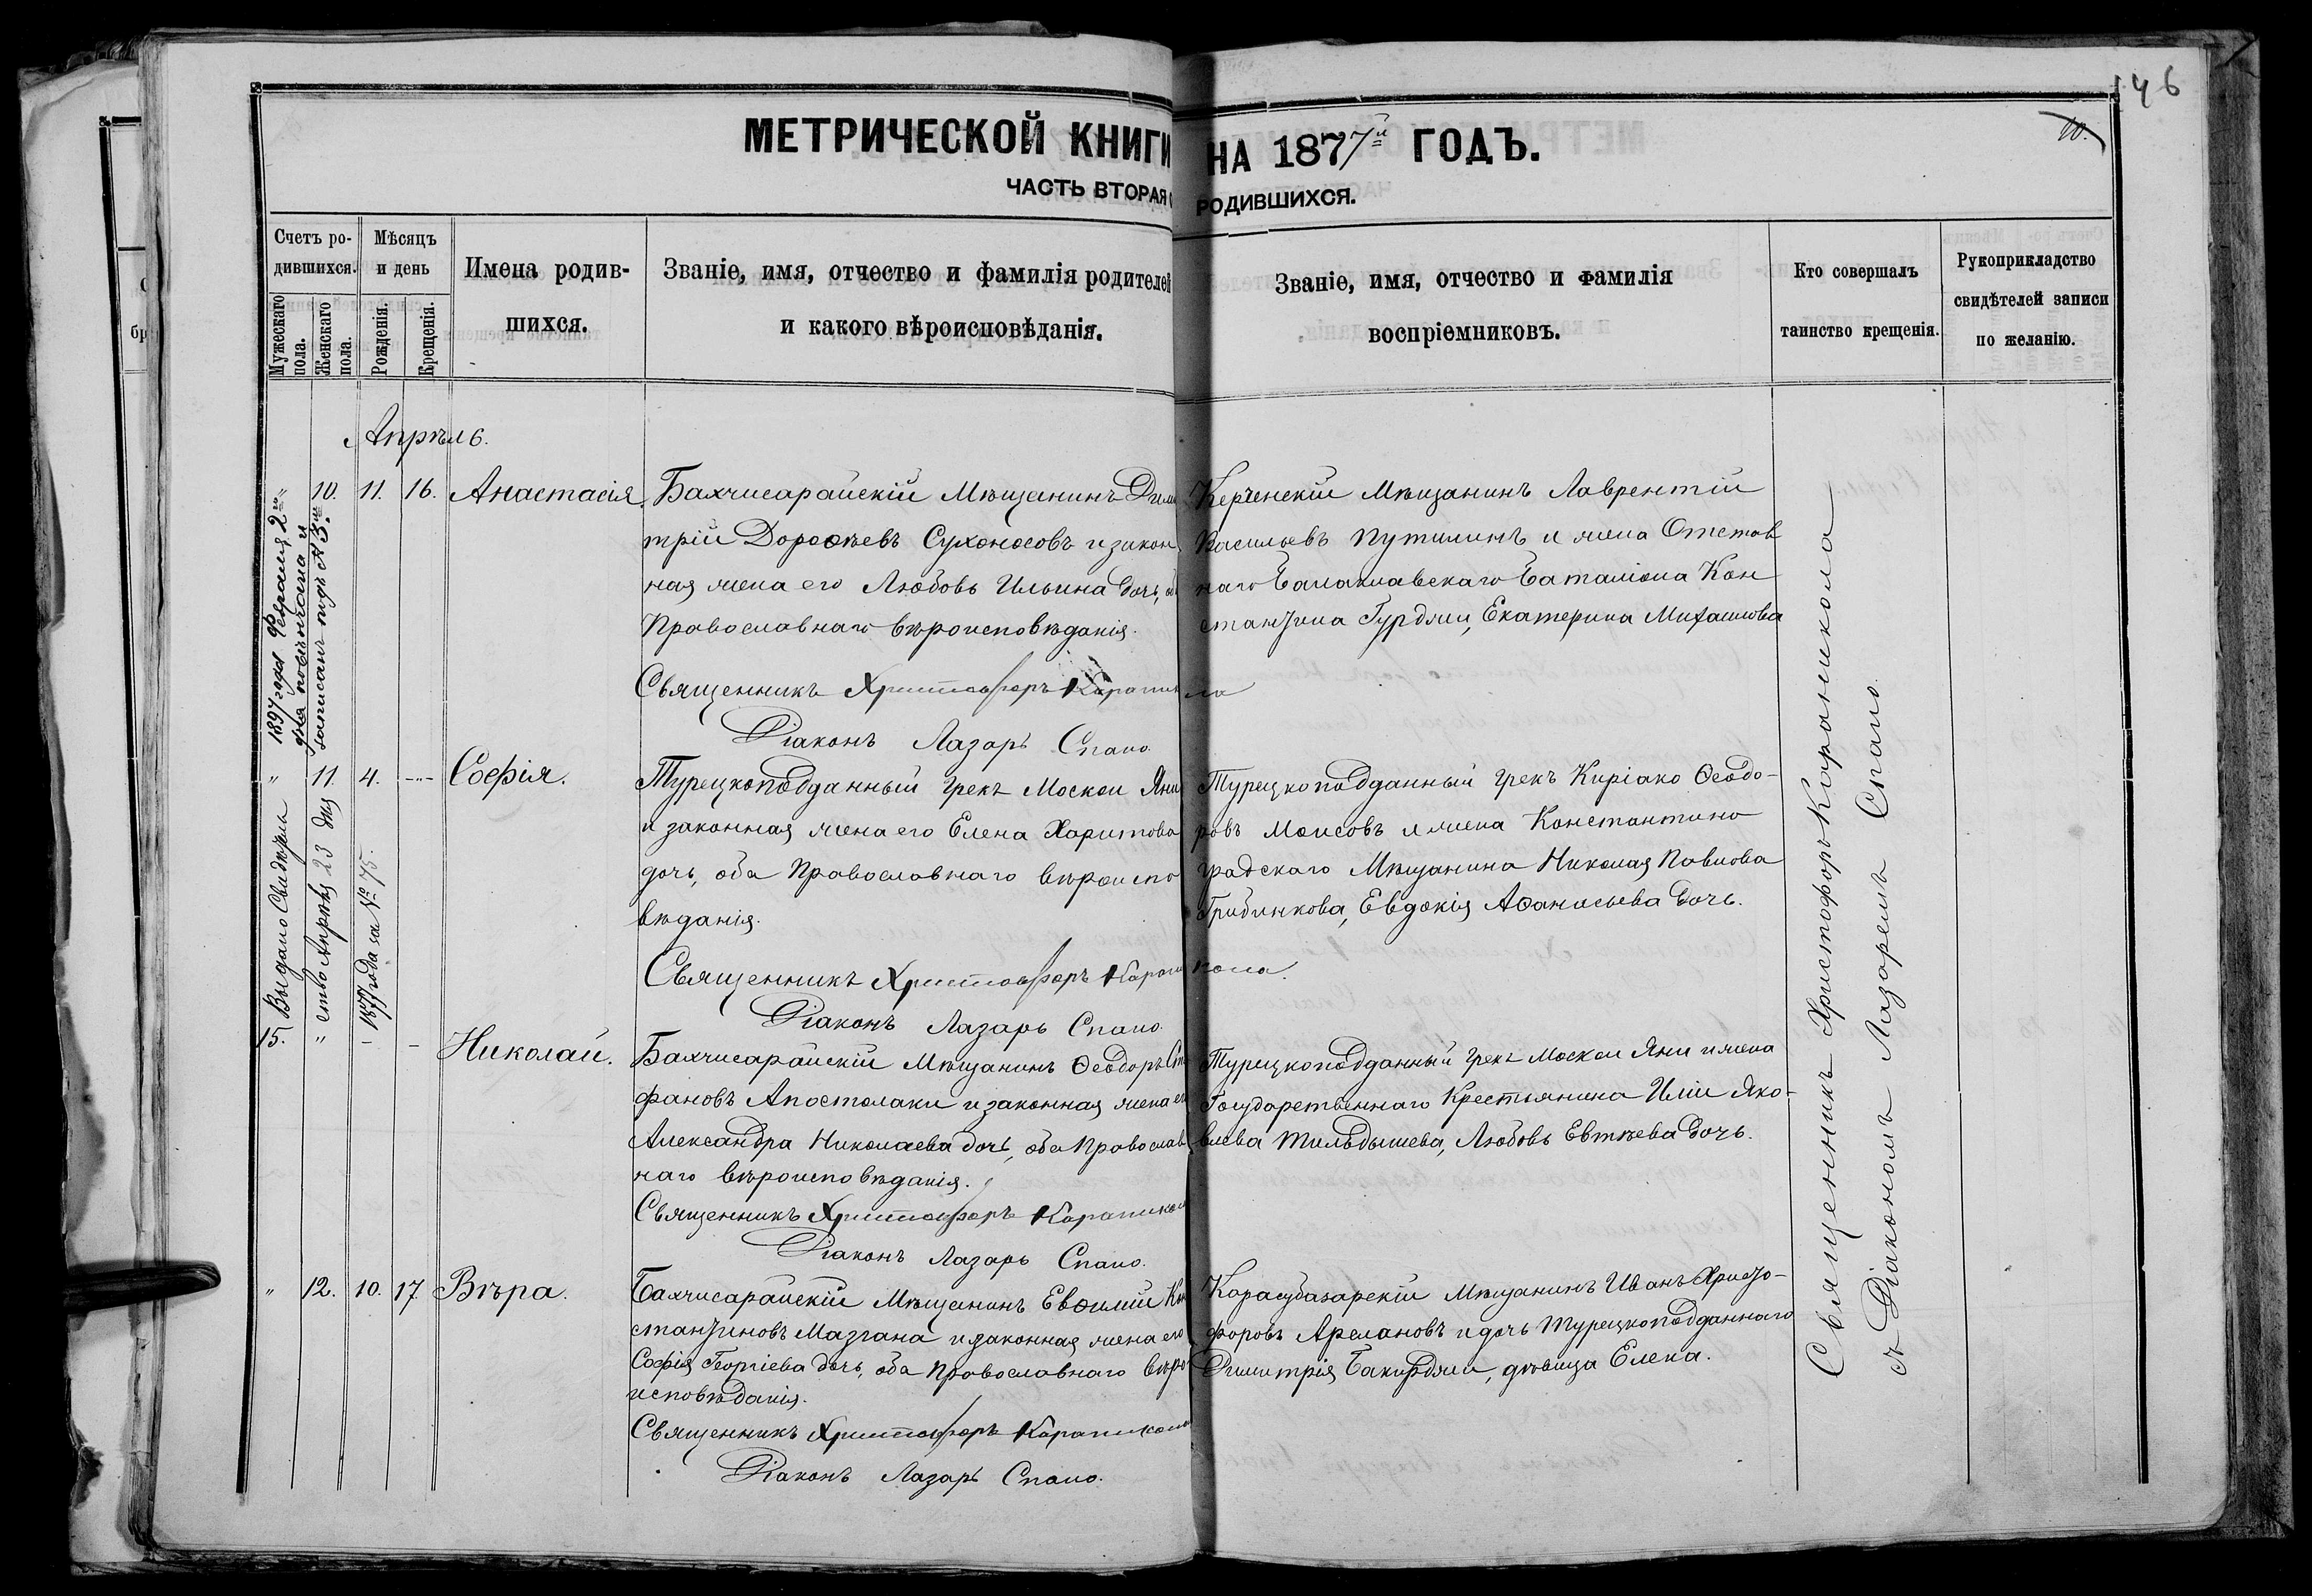 146
10.
МЕТРИЧЕСКОЙ КНИГИ НА 1877й ГОДЪ.
ЧАСТЬ ВТОРАЯ О РОДИВШИХСЯ.
Счетъ ро-
дившихся.
Мужескаго
пола.
Женскаго
пола.
Мѣсяцъ
и день
Рожденія.
Крещенія.
Имена родив-
шихся.
Званіе, имя, отчество и фамилія родителей
и какого вѣроисповѣданія.
Званіе, имя, отчество и фамилія
воспріемниковъ.
Кто совершалъ
таинство крещенія.
Рукоприкладство
свидѣтелей записи
по желанію.
Апрѣль.
" 10. 11. 16. Анастасія.
Бахчисарайскій Мѣщанинъ Дими
трій Дороѳѣевъ Сухоносовъ и закон
ная жена его Любовь Ильина дочь, об
Православнаго вѣроисповѣданія.
Священникъ Христофоръ Карапи ла
Діаконъ Лазарь Спано.
Керченскій Мѣщанинъ Лаврентій
Васильевъ Путилинъ и жена Отстав
наго Балаклавскаго баталіона Кон
стантина Гурджи, Екатерина Михайлова
1897 года Февраля 2го
дня повѣнчана и
записанъ подъ № 3мъ
" 11. 4. -"- Софія.
Турецкоподданный грекъ Москои Яни
и законная жена его Елена Харитова
дочь, оба Православнаго вѣроиспо
вѣданія.
Священникъ Христофоръ Карани кола.
Діаконъ Лазарь Спано.
Турецкоподданный грекъ Киріако Ѳеодо-
ровъ Моисовъ и жена Константино
градскаго Мѣщанина Николая Павлова
Грибинкова, Евдокія Аѳанасьева дочь.
Выдано Свидѣтель
ство Апрѣля 23 дня
1877 года за № 75.
15. " - - Николай.
Бахчисарайскій Мѣщанинъ Ѳеодоръ Сте
фановъ Апостолаки и законная жена ег
Александра Николаева дочь, оба Православ
наго вѣроисповѣданія.
Священникъ Христофоръ Караникол
Діаконъ Лазарь Спано.
Турецкоподданный грекъ Москои Яни и жена
Государственнаго Крестьянина Иліи Яко-
влева Тильдышева, Любовь Евтѣева дочь.
" 12. 10. 17. Вѣра.
Бахчисарайскій Мѣщанинъ Евѳимій Кон
стантиновъ Мазгана и законная жена его
Софія Георгіева дочь, оба Православнаго вѣро
исповѣданія.
Священникъ Христофоръ Караникола
Діаконъ Лазарь Спано.
Карасубазарскій Мѣщанинъ Иванъ Христо-
форовъ Арслановъ и дочь Турецкоподданнаго
Димитрія Бакирджи, дѣвица Елена.
Священникъ Христофоръ Караникола
съ Діакономъ Лазаремъ Спано.